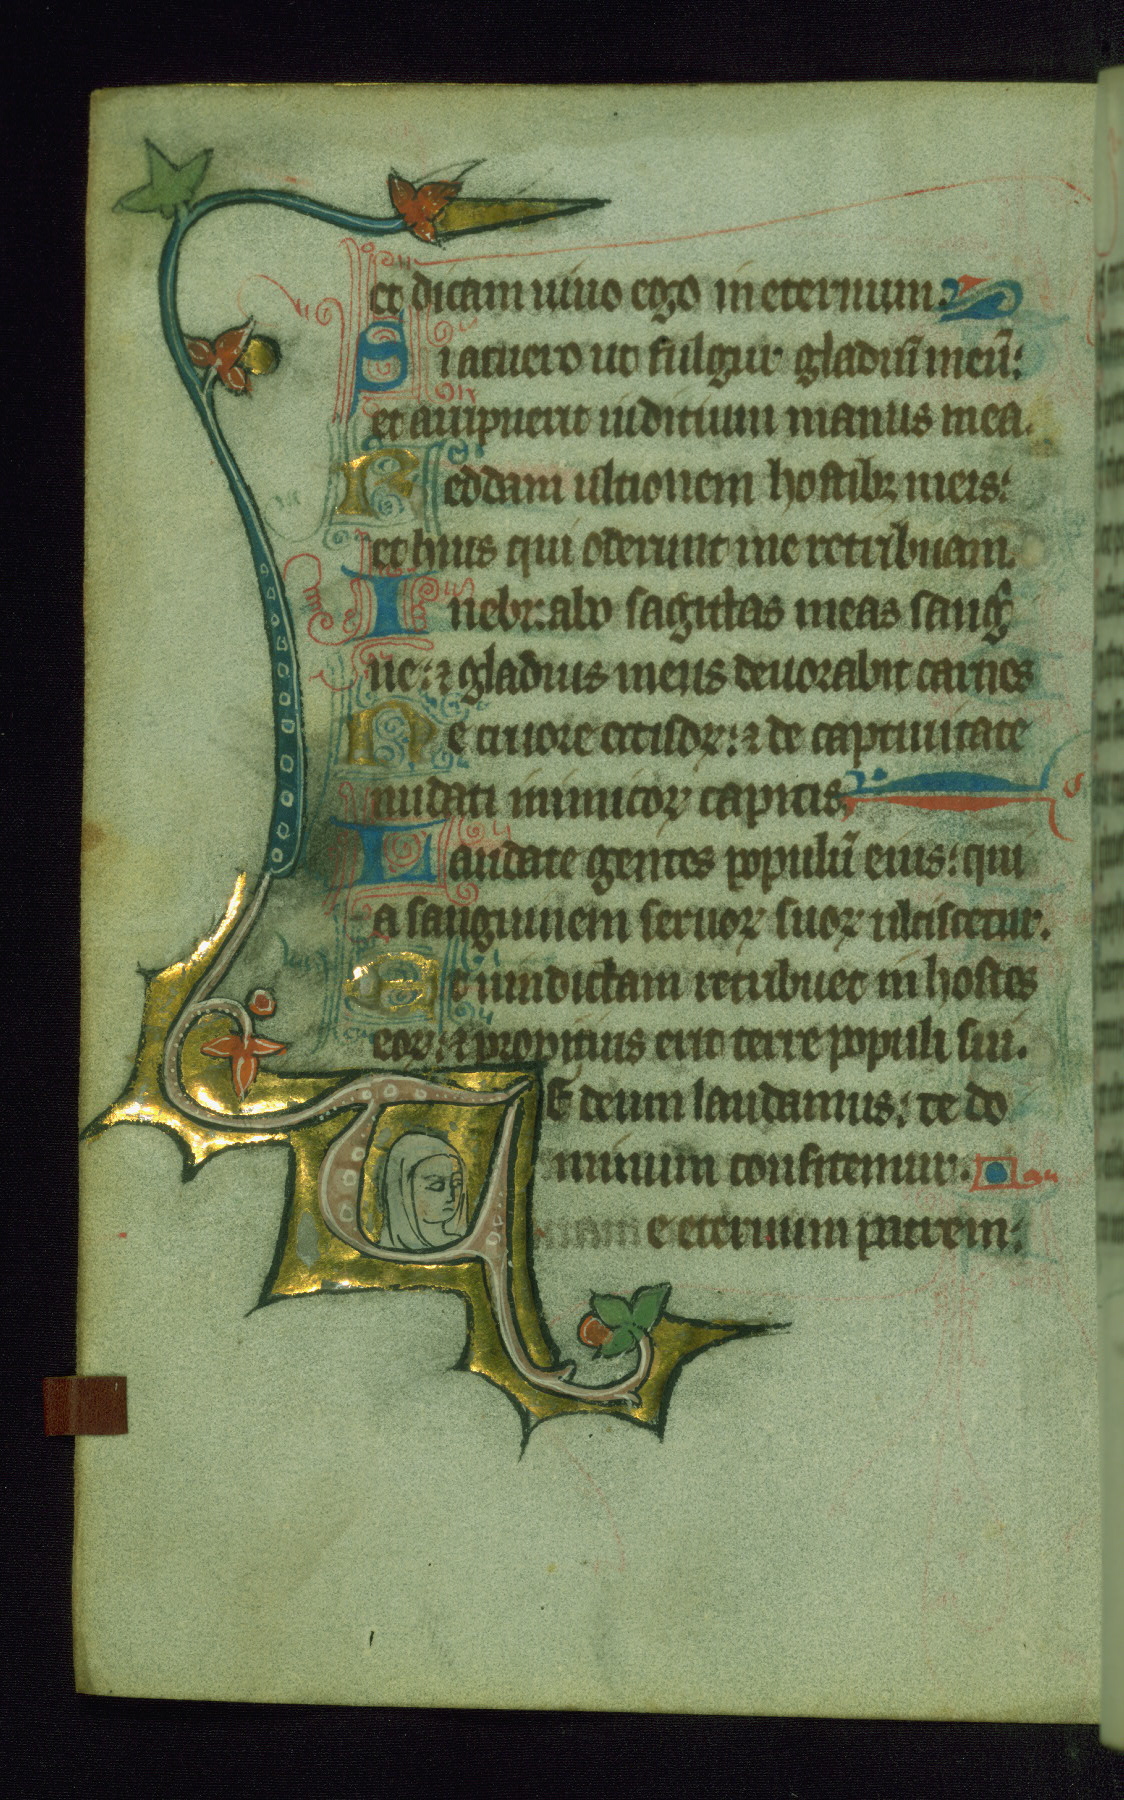 et dicam uiuo ego in eternum.
Si acuero ut fulgur gladiū meū:
et arripuerit iuditium manus mea.
Reddam ultionem hostibꝫ meis:
et hiis qui oderunt me retribuam.
Inebriabo sagittas meas sangͥ
ne: ⁊ gladius meus deuorabit carnes
De cruore occisoꝝ: ⁊ de captiuitate
nudati inimicoꝝ capitis.
Laudate gentes populū eius: qui
a sanguinem seruoꝝ suoꝝ ulciscetur.
Et uindictam retribuet in hostes
eoꝝ: ⁊ propitius erit terre populi sui.
TE deum laudamus: te do
minum confitemur.
e eternum patrem: